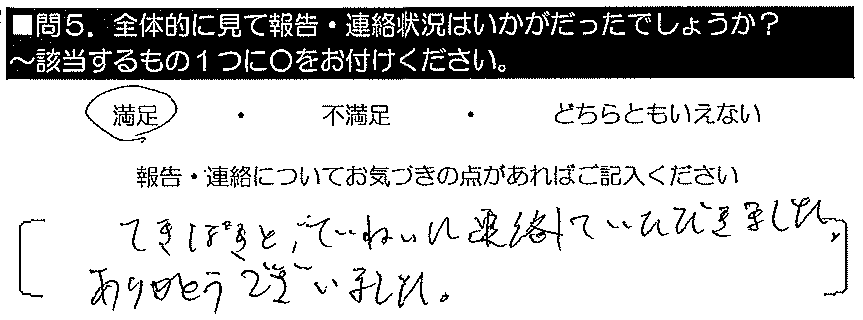 ■問5．全体的に見て報告・連絡状況はいかがだったでしょうか？
～該当するもの1つに○をお付けください。
満足 ・ 不満足 ・ どちらともいえない
報告・連絡についてお気づきの点があればご記入ください
てきぱきと、ていねいに連絡していただきました。
ありがとうございました。